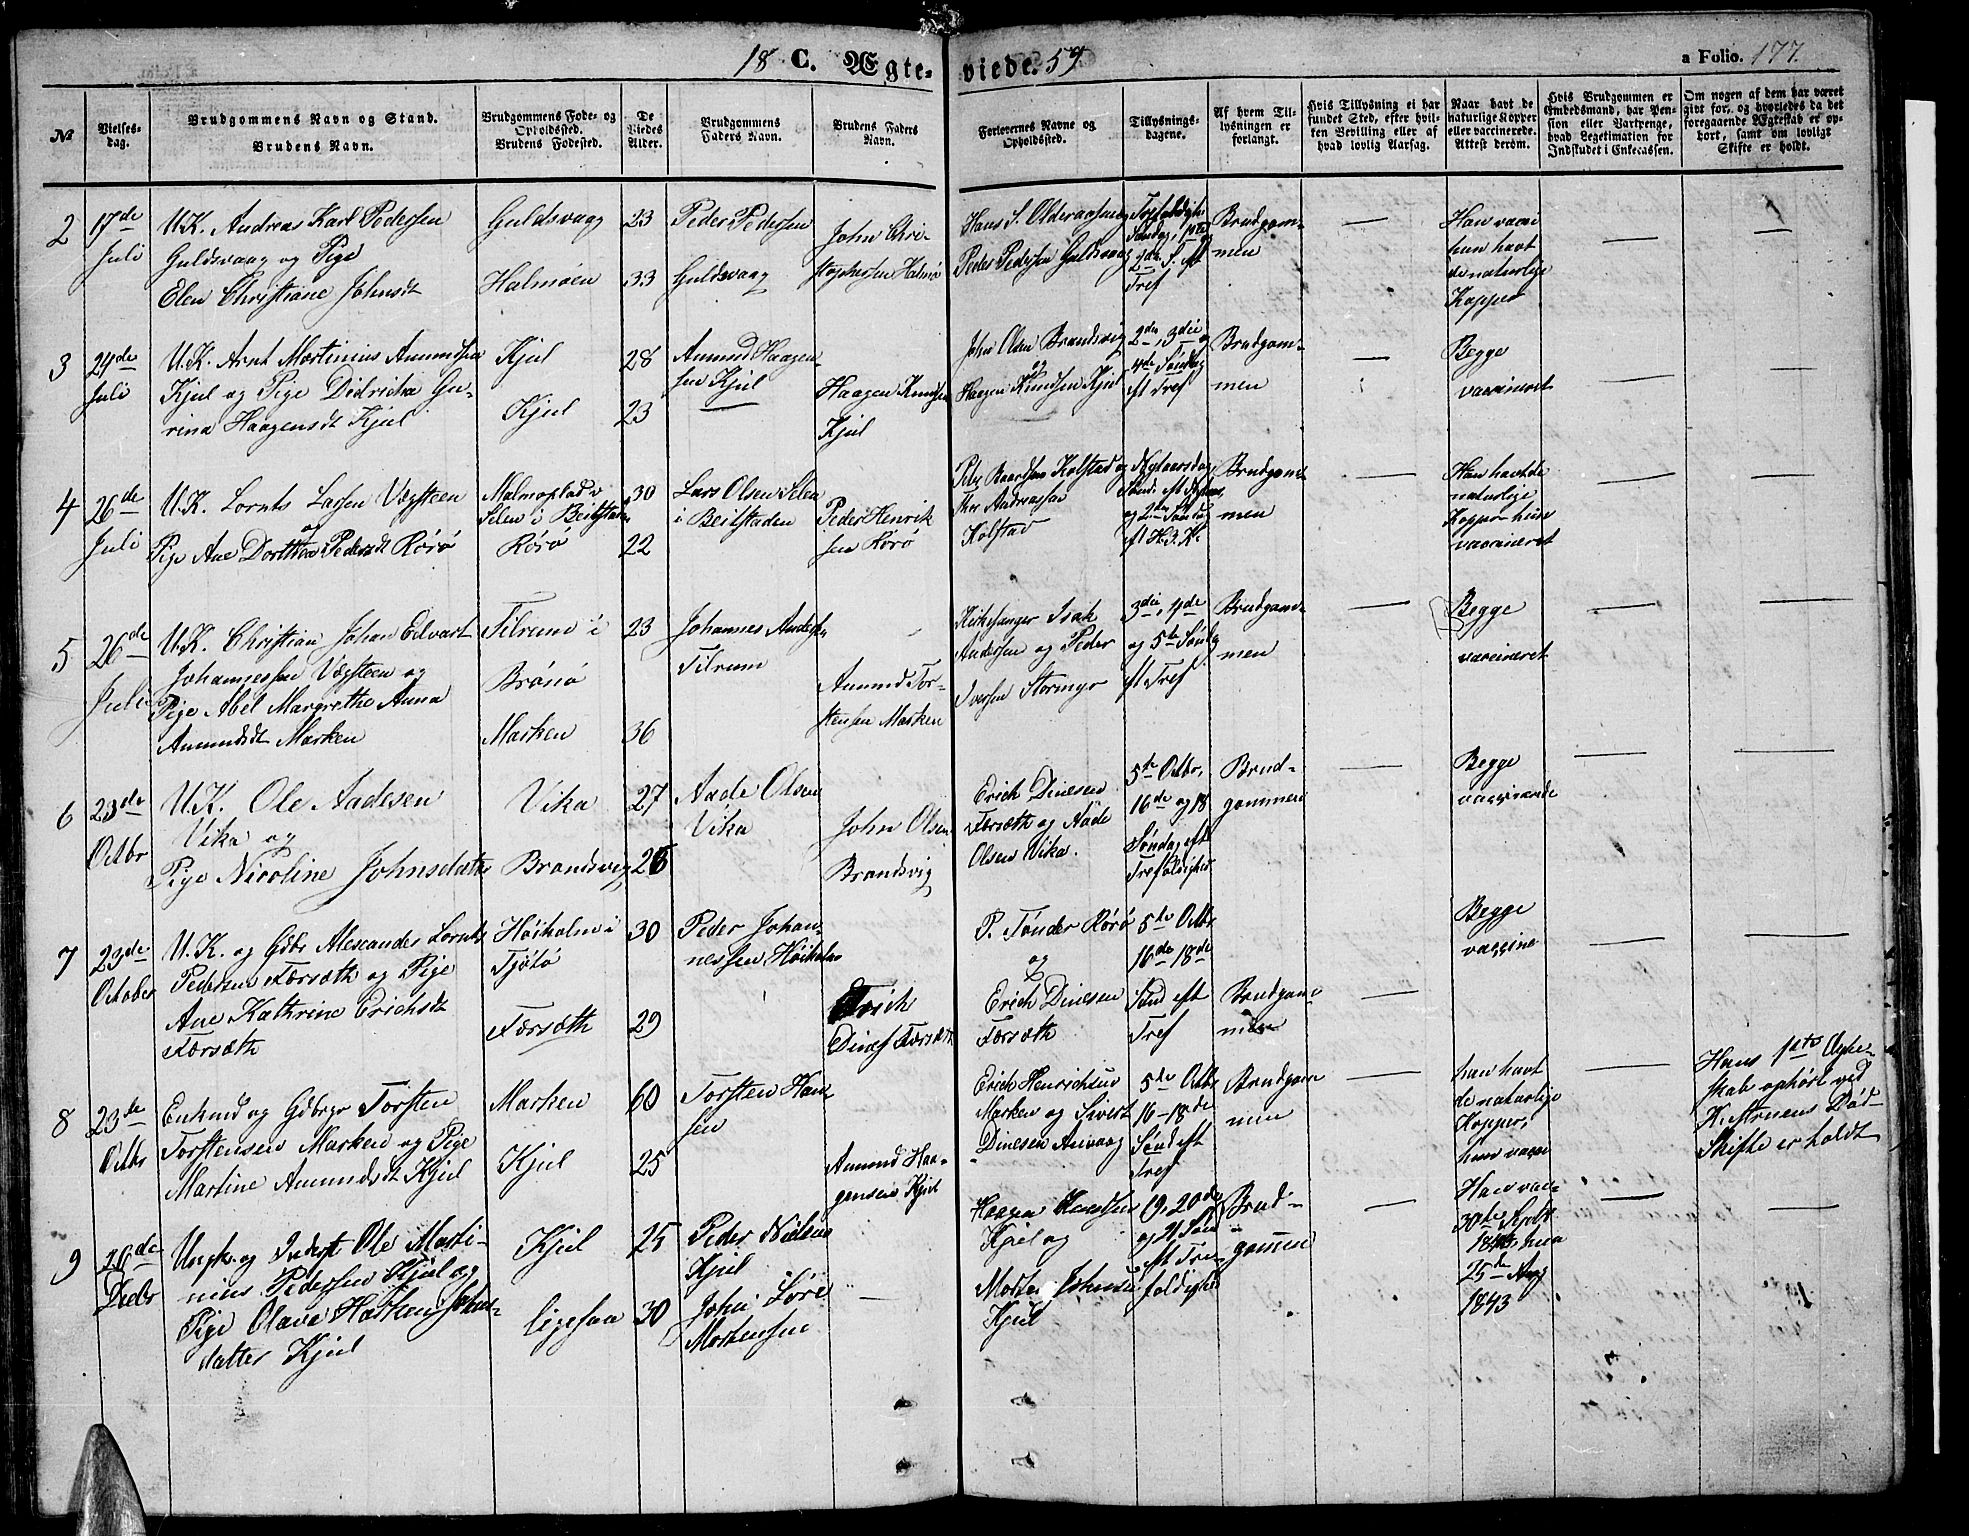 18 C. Ægte-viede. 57
a Folio. 177.
No
Vielses-
dag.
Brudgommens Navn og Stand.
Brudens Navn.
Brudgommens Føde- og
Opholdssted.
Brudens Fødested.
De
Viedes
Alder.
Brudgommens
Faders Navn.
Brudens Faders
Navn.
Forlovernes Navne og
Opholdssted.
Tillysnings-
dagene.
Af hvem Til-
lysningen er
forlangt.
Hvis Tillysning ei har
fundet Sted, efter hvil-
ken Bevilling eller af
hvad lovlig Aarsag.
Naar havt de
naturlige Kopper
eller vaccinerede.
Attest derom.
Hvis Brudgommen er
Embedsmand, har Pen-
sion eller Vartpenge,
hvad Legetimation for
Indskudet i Enkecassen.
Om nogen af dem har været
gift før, og hvorledes da det
foregaaende Ægteskab er op-
hørt, samt om lovligt
Skifte er holdt.
2
17de
Juli
U.K. Andreas Karl Pedersen
Guldsvaag og Pige
Elen Christiane Johnsdt
Guldsvaag
Halmøen
23
33
Peder Pedersen
Guldsvaag
John Chri-
stophersen Halmø
Hans S. Olderaasen
Peder Pedersen Guldsvaag
Søndag, 1ste og
2de S. eft
Tref
Brudgom-
men
Han vacc
hun havt
de naturlige
Kopper
3
24de
Juli
U.K. Arnt Martinius Amundsen
Kjul og Pige Didricha Gu-
rina Haagensdt Kjul
Kjul
Kjul
28
23
Amund Haagen-
sen Kjul
Haagen Knudsen
Kjul
John Olsen Brandsvig
og
Haagen Knudsen Kjul
2den, 3die og
4de Søndag
eft Tref
Brudgom-
men
Begge
vaccineret
4
26de
Juli
U.K. Lornts Larsen Vægsteen
og
Pige Ane Dorthea Pedersdt Rørø
Malmoplad
Selen i Beitstaden
Rørø
30
22
Lars Olsen Selen
i Beitstaden
Peder Henrik
sen Rørø
Peder Baardsen Kolstad og
Thor Andreassen
Kolstad
Nytaarsdag,
Sønd. eft Nytaar,
og 2den Søndag
eft H.3.K.
Brudgom-
men
Han havt de
naturlige
Kopper hun
vaccineret
5
26de
Juli
U.K. Christian Johan Edvart
Johannessen Vægsteen og
Pige Abel Margrethe Anna
Amundsdt Marken
Tilrum i
Brønø
Marken
23
36
Johannes Anders
Tilrum
Amund Tor-
stensen Marken
Kirkesanger Isak
Andersen og Peder
Iversen Stormyr
3die, 4de
og 5te Søndag
eft Tref
Brudgom-
men
Begge
vaccineret
6
23de
Octbr
U.K. Ole Aadesen
Vika og
Pige Nicoline Johnsdatter
Vika
Brandsvig
27
26
Aade Olsen
Vika
John Olsen
Brandsvig
Erich Dinesen
Færsæth og Aade
Olsen Vika.
5te Octbr,
16de og 18
Søndag eft
Trefoldighed
Brud-
gommen
Begge
vaccinerede
7
23de
October
U.K. og Gdbr Alexander Lornts
Pedersen Færsæth og Pige
Ane Kathrine Erichsdt
Færsæth
Høiholm i
Tjøtø
Færsæth
30
29
Peder Johan-
nessen Høiholm
Erich
Dines Færsæth
P. Tønder Rørø
og
Erich Dinesen
Færsæth
5de Octbr
16de 18de
Sønd eft
Tref
Brudgom-
men
Begge
vaccine
8
23de
Octbr
Enkmd og Gdbrgr Torsten
Torstensen Marken og Pige
Martine Amundsdt Kjul
Marken
Kjul
60
25
Torsten Han-
sen
Amund Haa-
gensen Kjul
Erich Henrichsen
Marken og Sivert
Dinesen Anvaag
5de Octbr
16-18de
Sønd eft
Tref
Brudgom
men
han havt
de naturlige
Kopper,
hun vacci
Hans 1ste Ægte-
skab ophørt ved
K.struens Død
Skifte er holdt
9
29de
Decbr
Ungk. og Inderst Ole Marti-
nius Pedersen Kjul og
Pige Olava Hansken Johns-
datter Kjul
Kjul
ligesaa
25
30
Peder Nielsen
Kjul
John Løre
Mortensen
Haagen Knudsen
Kjul og
Morten Johnsen
Kjul
19, 20de
og 21 Søn
eft Tre-
foldighed
Brud-
gommen
Han vac-
30te Septb
1845, hun
25de Aug
1843